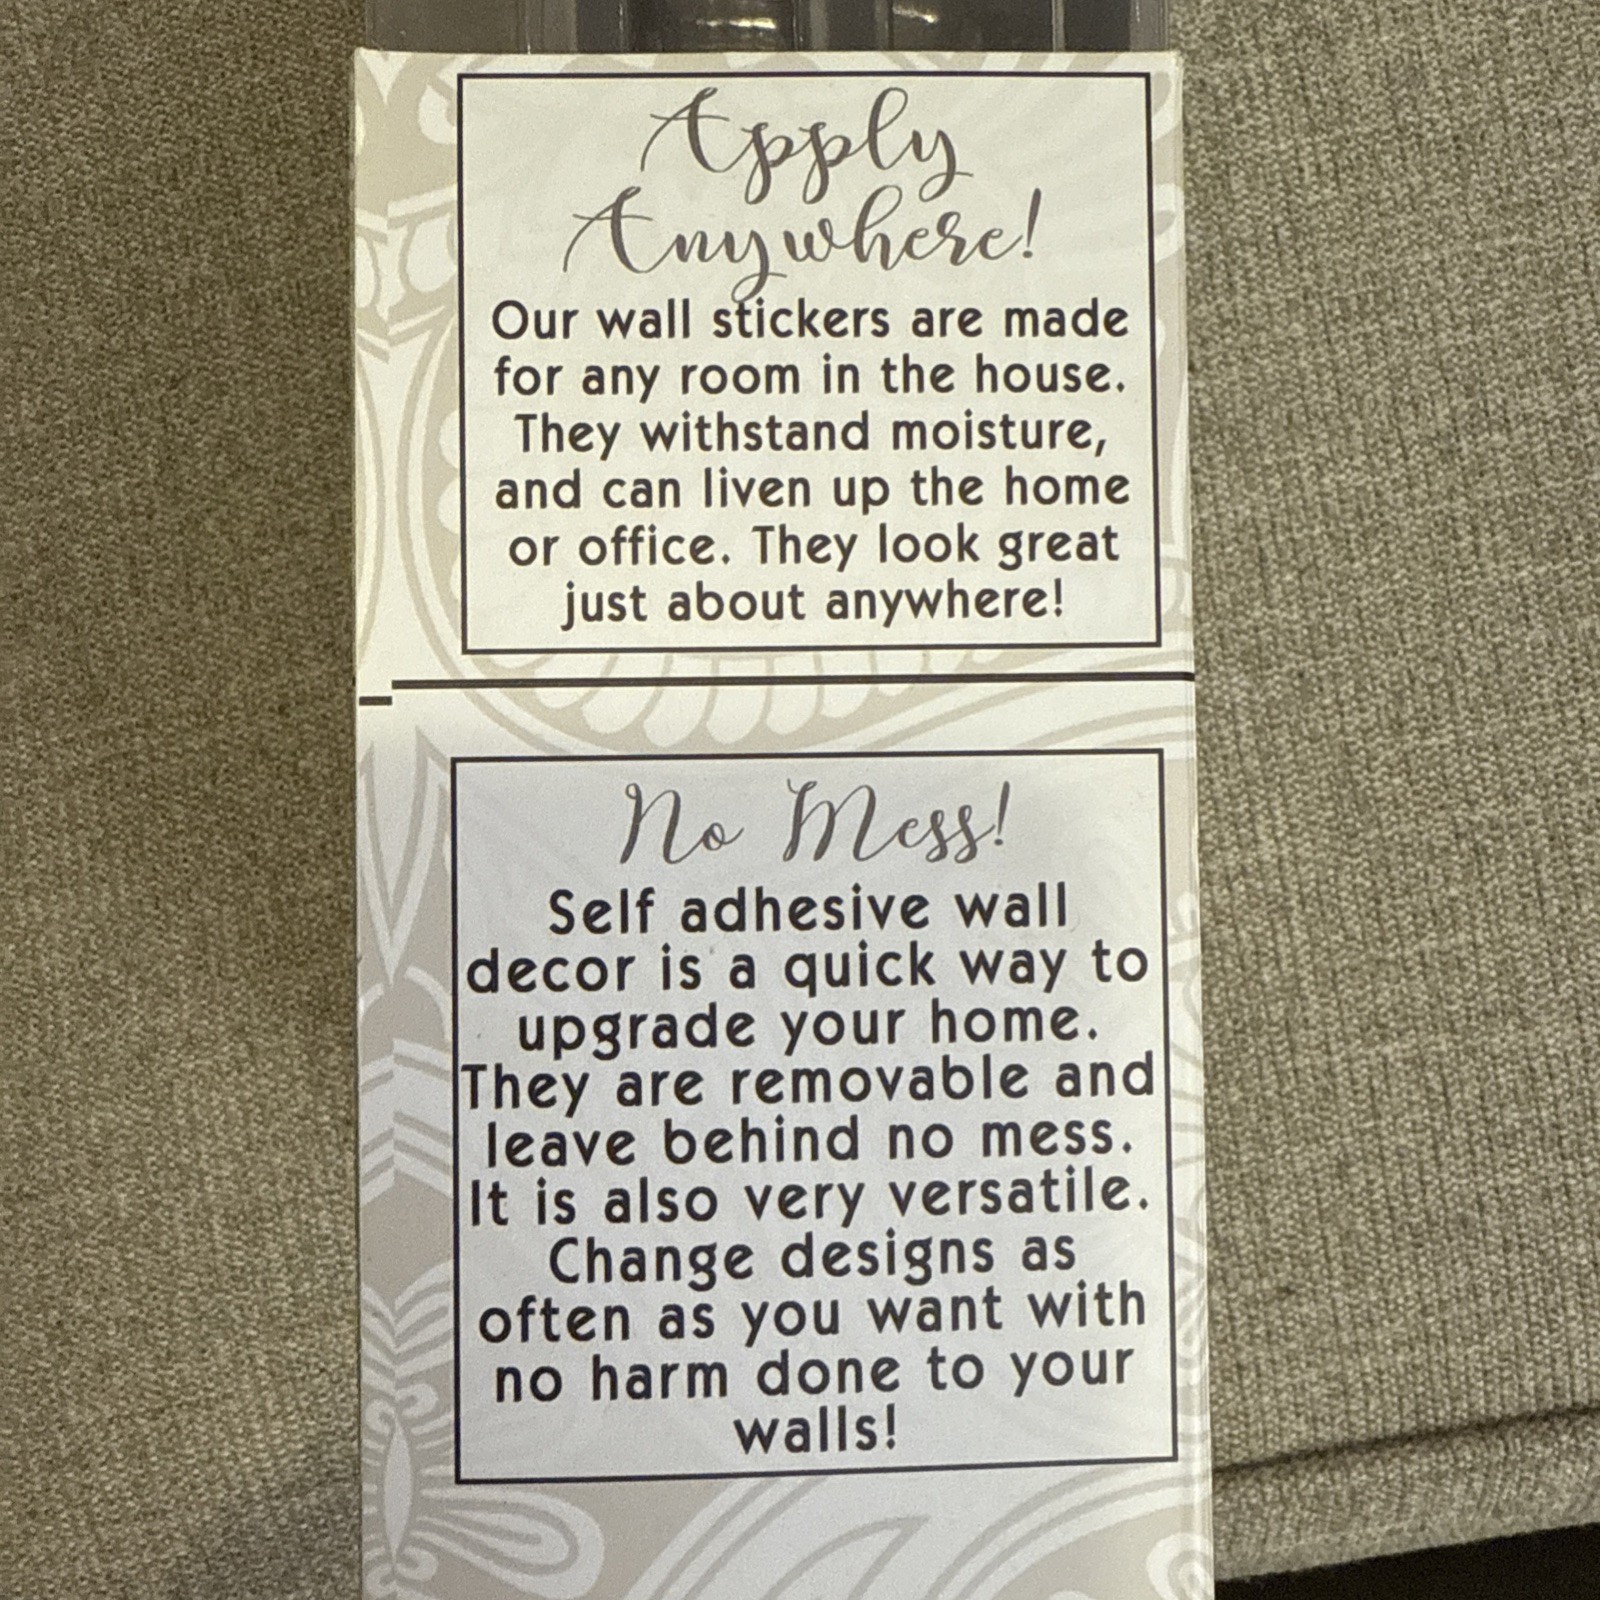 Apply
Anywhere!
Our wall stickers are made
for any room in the house.
They withstand moisture,
and can liven up the home
or office. They look great
just about anywhere!
No Mess!
Self adhesive wall
decor is a quick way to
upgrade your home.
They are removable and
leave behind no mess.
It is also very versatile.
Change designs as
often as you want with
no harm done to your
walls!